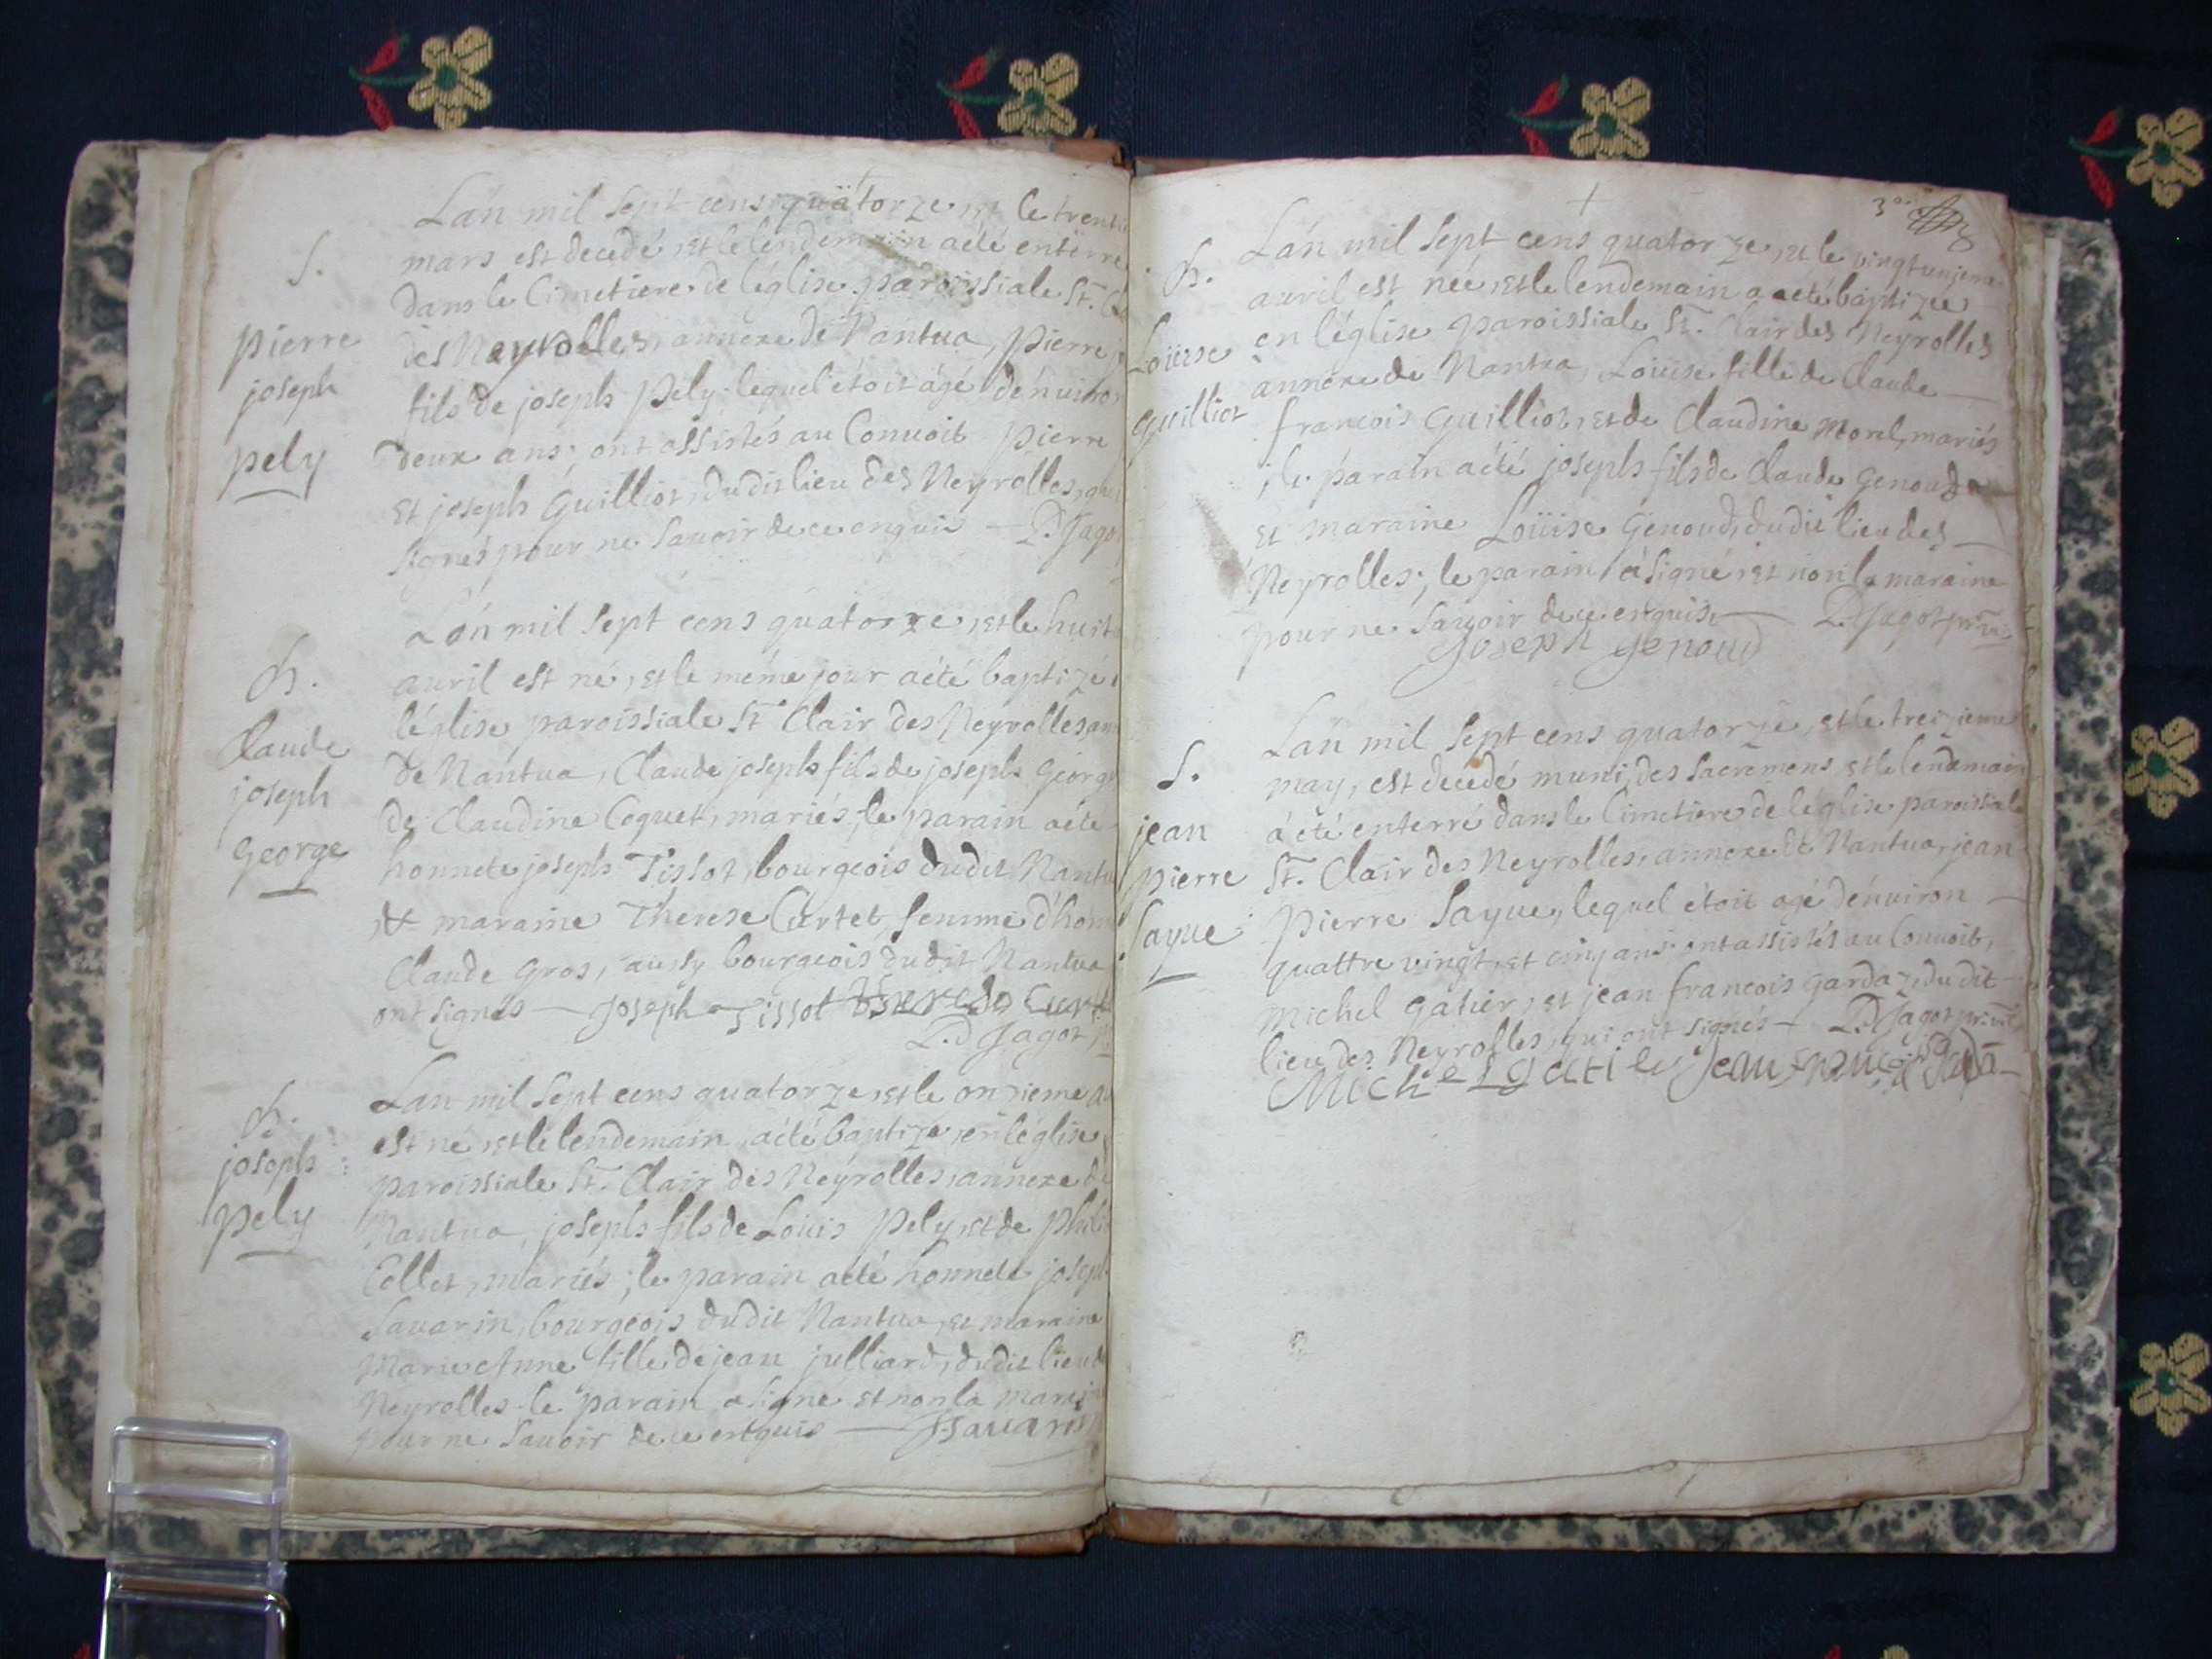 Lan mil sept cens quatorze, et le trenti
mars est decedé, et le lendemain a eté enterré
dans le Cimetiere de léglise paroissiale St.
des Neyrolles, annexe de Nantua, Pierre
fils de joseph Pely, lequel étoit agé dénuiron
deux ans; ont assistés au Conuoit Pierre
Et joseph Guilliot, dudit lieu des Neyrolles,
signés pour ne sauoir de ce enquis — D. Jagot
S.
pierre
joseph
pely
Lan mil sept cens quatorze, et le huit
auril est né, et le méme jour a eté baptizé
léglise paroissiale St. Clair des Neyrolles an
de Nantua, Claude joseph fils de joseph George
de Claudine Coquet, mariés, le parain a eté
honnete joseph Tissot, bourgeois dudit Nantua
& maraine Therese Curtet, femme d'hon
Claude Gros, aussy bourgeois dudit Nantua
ont signés — joseph Tissot
P. D Jagot
B.
Claude
joseph
George
Lan mil sept cens quatorze, et le onzieme a
est né, et le lendemain, a eté baptize, en léglise
paroissiale St. Clair des Neyrolles, annexe de
Nantua, joseph fils de Loüis Pely, et de Phili
Collet, mariés; le parain a eté honnete joseph
Sauarin, bourgeois dudit Nantua, et maraine
Marie Anne fille de jean julliard, dudit lieu de
Neyrolles. le parain a signe et non la marai
pour ne sauoir de ce enquis — J Sauarin
B.
joseph
pely
3e
Lan mil sept cens quatorze, et le vingtunjeme
auril est née, et le lendemain a eté baptizee
en léglise paroissiale St. Clair des Neyrolles
annexe de Nantua, Loüise fille de Claude —
francois Guilliot, et de Claudine Morel, mariés
; le parain a eté joseph fils de Claude Genoud
et maraine Loüise Genoud, dudit lieu des —
Neyrolles; le parain à signé, et non la maraine
pour ne sauoir de ce enquis, — P. D Jagot
joseph genoud
B.
Loüise
Guilliot
Lan mil sept cens quatorze, et le treizieme
may, est decedé muni, des sacremens, et le lendemain
à eté enterré dans le Cimetiere de léglise paroissiale
St. Clair des Neyrolles, annexe de Nantua, jean
Pierre Sayue, lequel étoit agé dénuiron —
quattre vingt, et cinq ans; ont assistés au Conuoit,
Michel Gatier, et jean francois Gardaz, dudit —
lieu des Neyrolles, qui ont signés — P. D Jagot
Michel gatie jean
S.
jean
pierre
Sayue